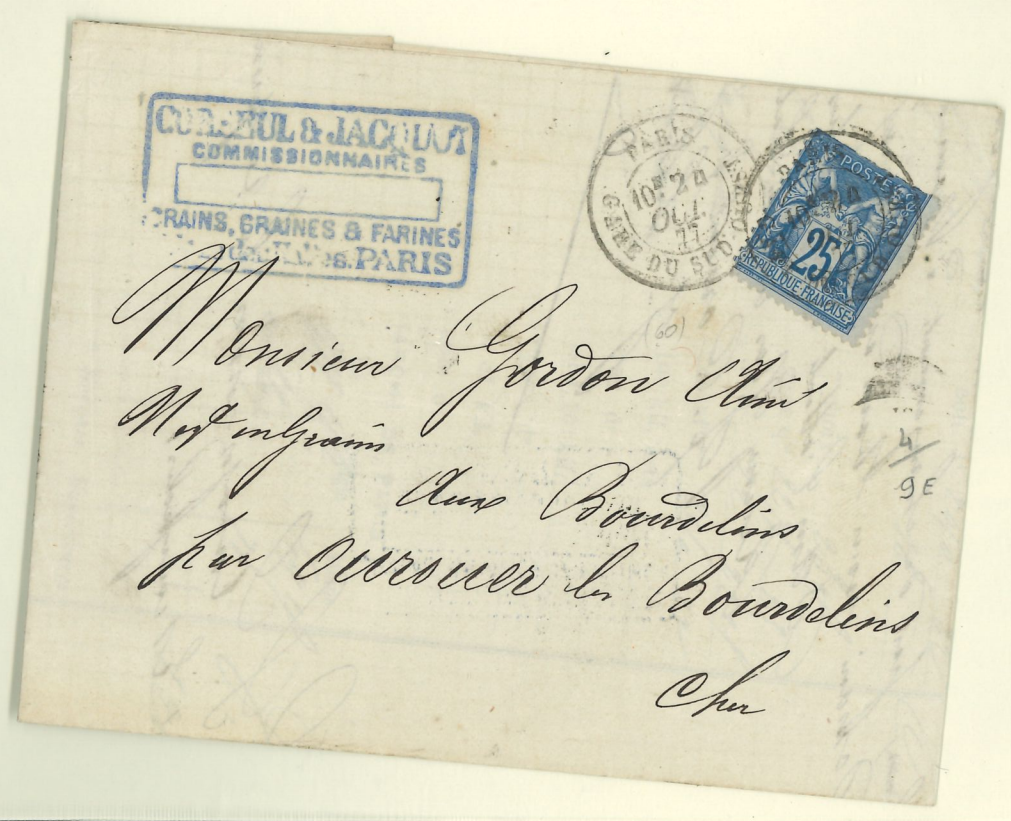 COMMISSIONNAIRES
GRAINS, GRAINES & FARINES
PARIS
PARIS
10E 24
OCT.
77
GARE DU SUD OUEST
POSTES
25
REPUBLIQUE FRANÇAISE
Monsieur Gordon Aimé
Md en Grains
(60)
4/
9E
Aux Bourdelins
par Ourouer les Bourdelins
Cher